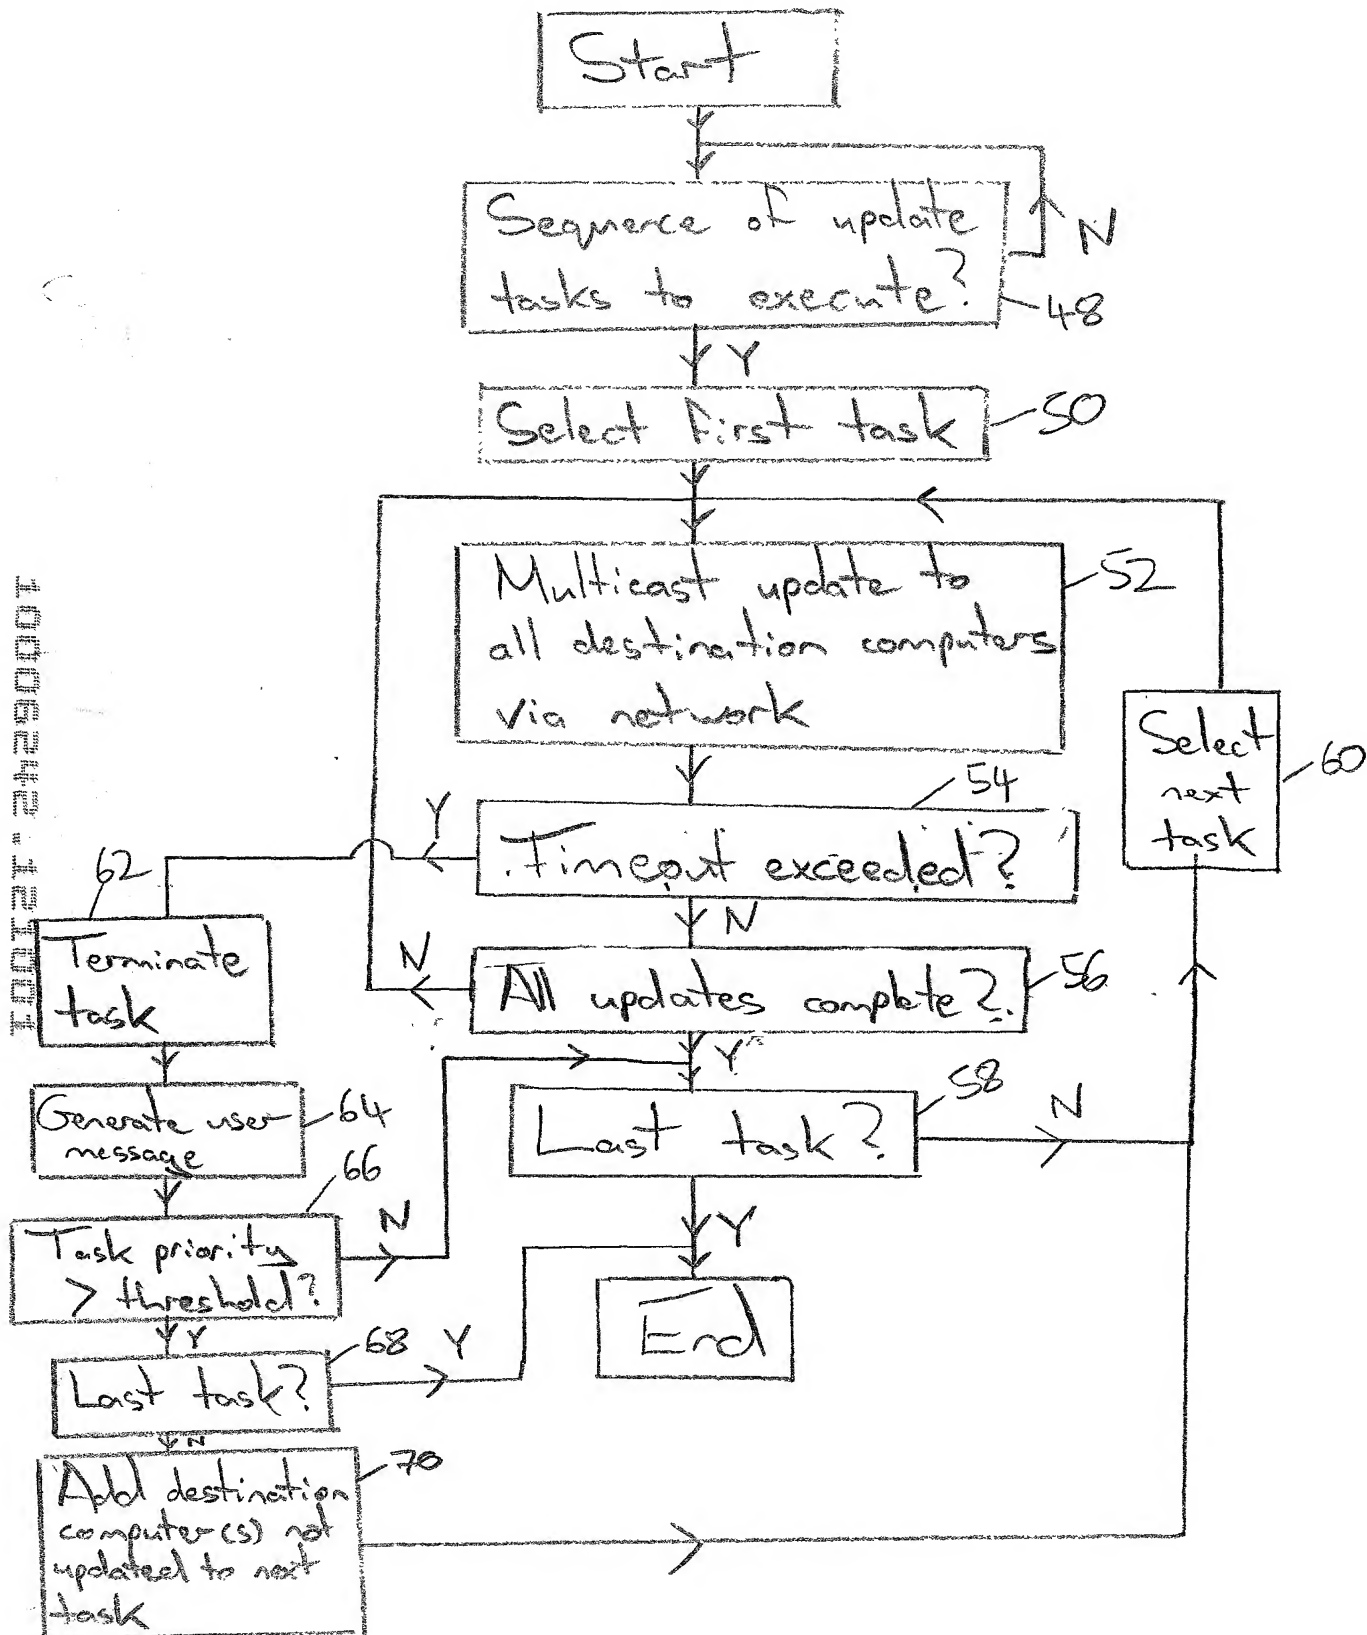 Start
Sequence of update
tasks to execute?
N
48
Y
Select first task
50
Multicast update to
all destination computers
via network
52
Select
next
task
60
54
Y
Timeout exceeded?
62
N
Terminate
task
N
All updates complete?
56
Y
58
Generate user
message
64
Last task?
N
66
Task priority
> threshold?
N
Y
Y
End
68
Last task?
Y
N
70
Add destination
computer(s) not
updated to next
task
10006242.121001